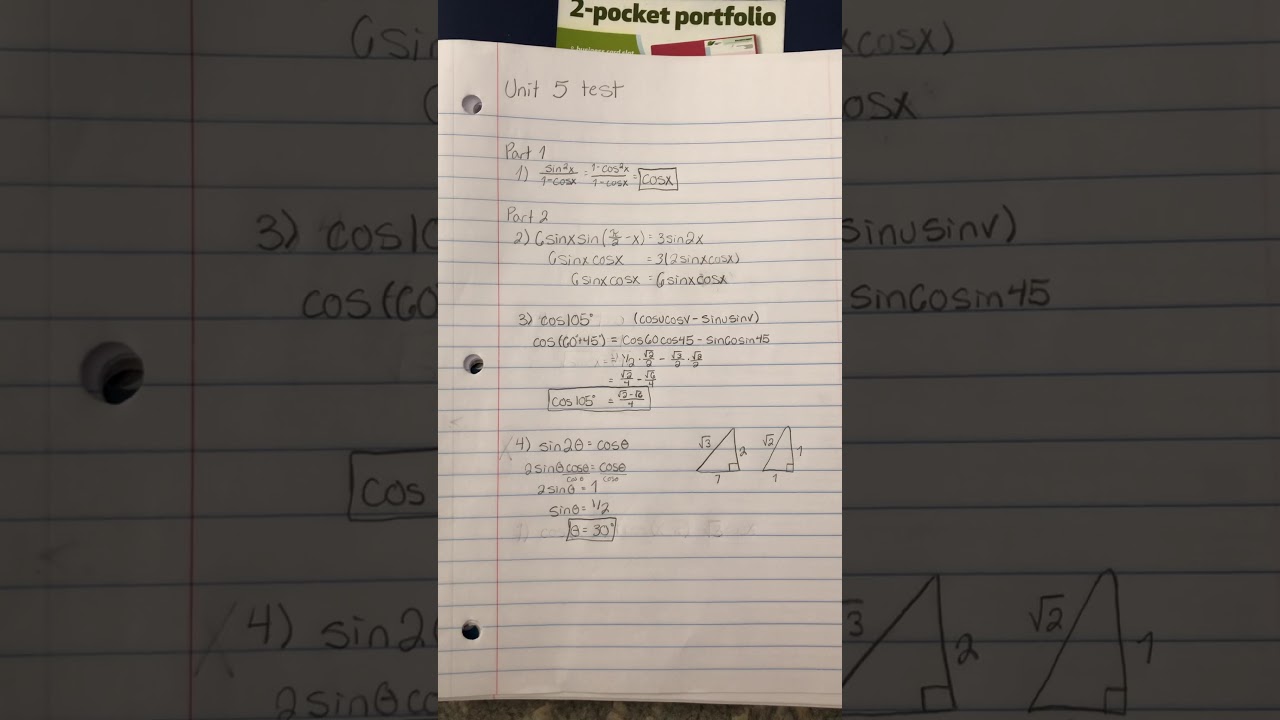 2-pocket portfolio
Unit 5 test
Part 1
1) sin²x/1-cosx = 1-cos²x/1-cosx = cosx
Part 2
2) 6sinxsin(π/2-x) = 3sin2x
6sinxcosx = 3(2sinxcosx)
6sinxcosx = 6sinxcosx
3) cos105° (cosucosv-sinusinv)
cos(60°+45°) = cos60cos45-sin60sin45
= 1/2·√2/2 - √3/2·√2/2
= √2/4 - √6/4
cos105° = √2-√6/4
4) sin2θ=cosθ
√3 2 1
√2 1 1
2sinθcosθ/cosθ = cosθ/cosθ
2sinθ=1
sinθ=1/2
θ=30°